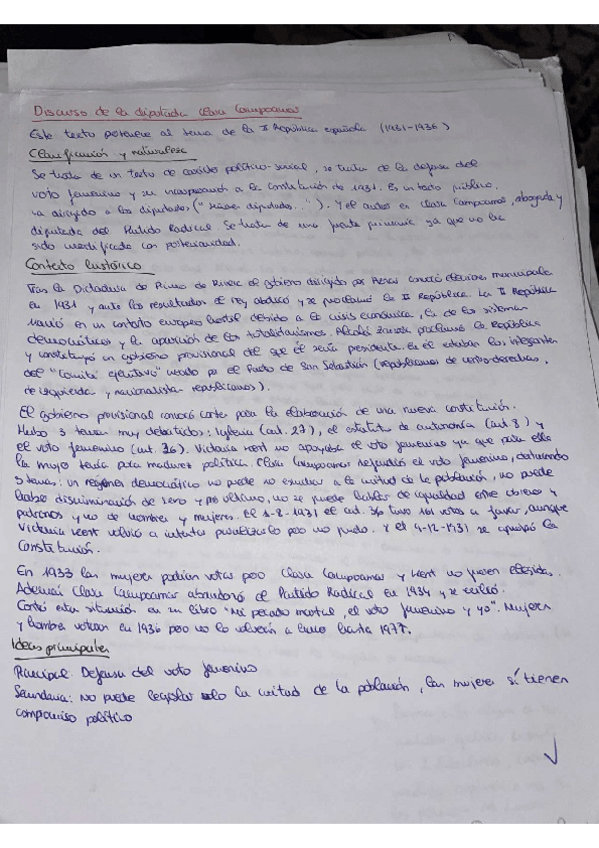 Discurso de la diputada Clara Campoamor
Este texto pertenece al tema de la II República española (1931-1936)
Clasificación y naturaleza
Se trata de un texto de carácter político-social, se trata de la defensa del
voto femenino y su incorporación a la constitución de 1931. Es un texto público,
va dirigido a los diputados ("Señores diputados..."). Y el autor es Clara Campoamor, abogada y
diputada del Partido Radical. Se trata de una fuente primaria ya que no ha
sido modificada con posterioridad.
Contexto histórico
Tras la Dictadura de Primo de Rivera el gobierno dirigido por Aznar convocó elecciones municipales
en 1931 y ante los resultados el rey abdicó y se proclamó la II República. La II República
nació en un contexto europeo hostil debido a la crisis económica, la de los sistemas
democráticos y la aparición de los totalitarismos. Alcalá Zamora proclamó la República
y constituyó un gobierno provisional del que él sería presidente. En él estaban los integrantes
del "Comité ejecutivo" creado por el Pacto de San Sebastián (republicanos de centro-derechas,
de izquierda y nacionalistas republicanos).
El gobierno provisional convocó cortes para la elaboración de una nueva constitución.
Hubo 3 temas muy debatidos: Iglesia (art. 27), el estatuto de autonomía (art 8) y
el voto femenino (art. 36). Victoria Kent no apoyaba el voto femenino ya que para ella
la mujer tenía poca madurez política. Clara Campoamor defendió el voto femenino,
3 temas: un régimen democrático no puede no escuchar a la mitad de la población, no puede
haber discriminación de sexo y por último, no se puede hablar de igualdad entre obreros y
patronos y no de hombres y mujeres. El 1-8-1931 el art. 36 tuvo 161 votos a favor, aunque
Victoria Kent volvió a intentar paralizarlo pero no pudo. Y el 9-12-1931 se aprobó la
Constitución.
En 1933 las mujeres podían votar pero Clara Campoamor y Kent no fueron elegidas.
Además Clara Campoamor abandonó el Partido Radical en 1934 y se exilió.
Contó esta situación en un libro "Mi pecado mortal, el voto femenino y yo". Mujeres
y hombres votaron en 1936 pero no lo volverán a hacer hasta 1977.
Ideas principales
Principal: Defensa del voto femenino
Secundaria: No puede legislar solo la mitad de la población, las mujeres sí tienen
compromiso político